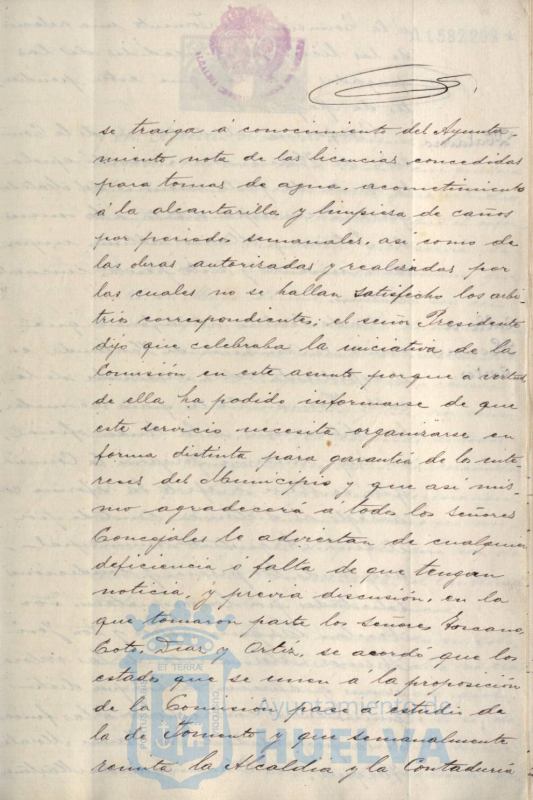 se traiga á conocimiento del Ayunta-
miento, nota de las licencias concedidas
para tomas de agua, acometimiento
á la alcantarilla y limpiesa de caños
por periodos semanales, así como de
las obras autorizadas y realizadas por
las cuales no se hallan satisfecho los arbi
trios correspondientes; el señor Presidente
dijo que celebraba la iniciativa de la
Comisión en este asunto porque á virtud
de ella ha podido informarse de que
este servicio necesita organizarse en
forma distinta para garantia de los inte-
reses del Municipio y que así mis-
mo agradecerá á todos los señores
Concejales le adviertan de cualquier
deficiencia ó falta de que tengan
noticia, y previa discusión, en la
que tomaron parte los señores Toscano,
Coto, Diaz y Ortiz, se acordó que los
estados que se unen á la proposición
de la Comisión pase á estudio de
la de Fomento y que semanalmente
remita la Alcaldia y la Contaduría
ET TERRÆ
Ayuntamiento de
HUELVA